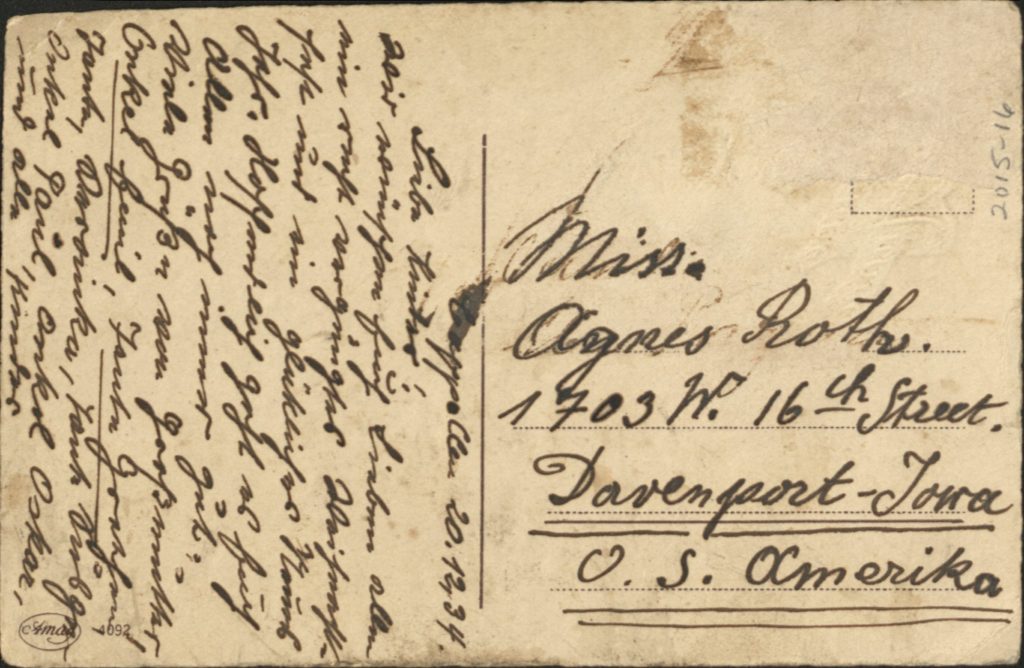 20.12.34.
Liebe
Wir wünschen Euch Lieben allen
ein recht vergnügtes Weihnacht-
fest und ein glükliches Neues
Jahr. Hoffendlich geht es Euch
Allen noch immer gut.
Viele Grüße von Großmutter
Onkel Emil, Tante
Tante, Tante
Onkel Paul, Onkel Oskar,
und alle Kinder
Amag 4092
Miss.
Agnes Roth.
1703 W. 16th Street.
Davenport-Iowa
U. S. Amerika
2015-16